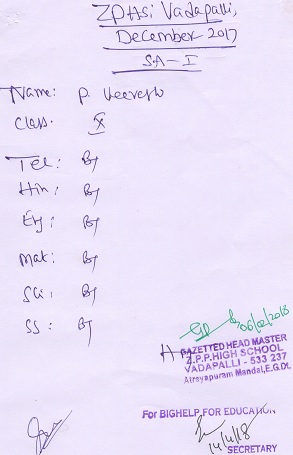 ZPHS, Vadapalli,
December 2017
SA-I
Name: P. Veeresh
Class: X
Tel: B1
Hin: B1
Eng: B1
Mat: B1
Sci: B1
SS: B1
06/02/2018
GAZETTED HEAD MASTER
Z.P.P.HIGH SCHOOL
VADAPALLI - 533 237
Atreyapuram Mandal,E.G.Dt.
For BIGHELP FOR EDUCATION
14/4/18
SECRETARY